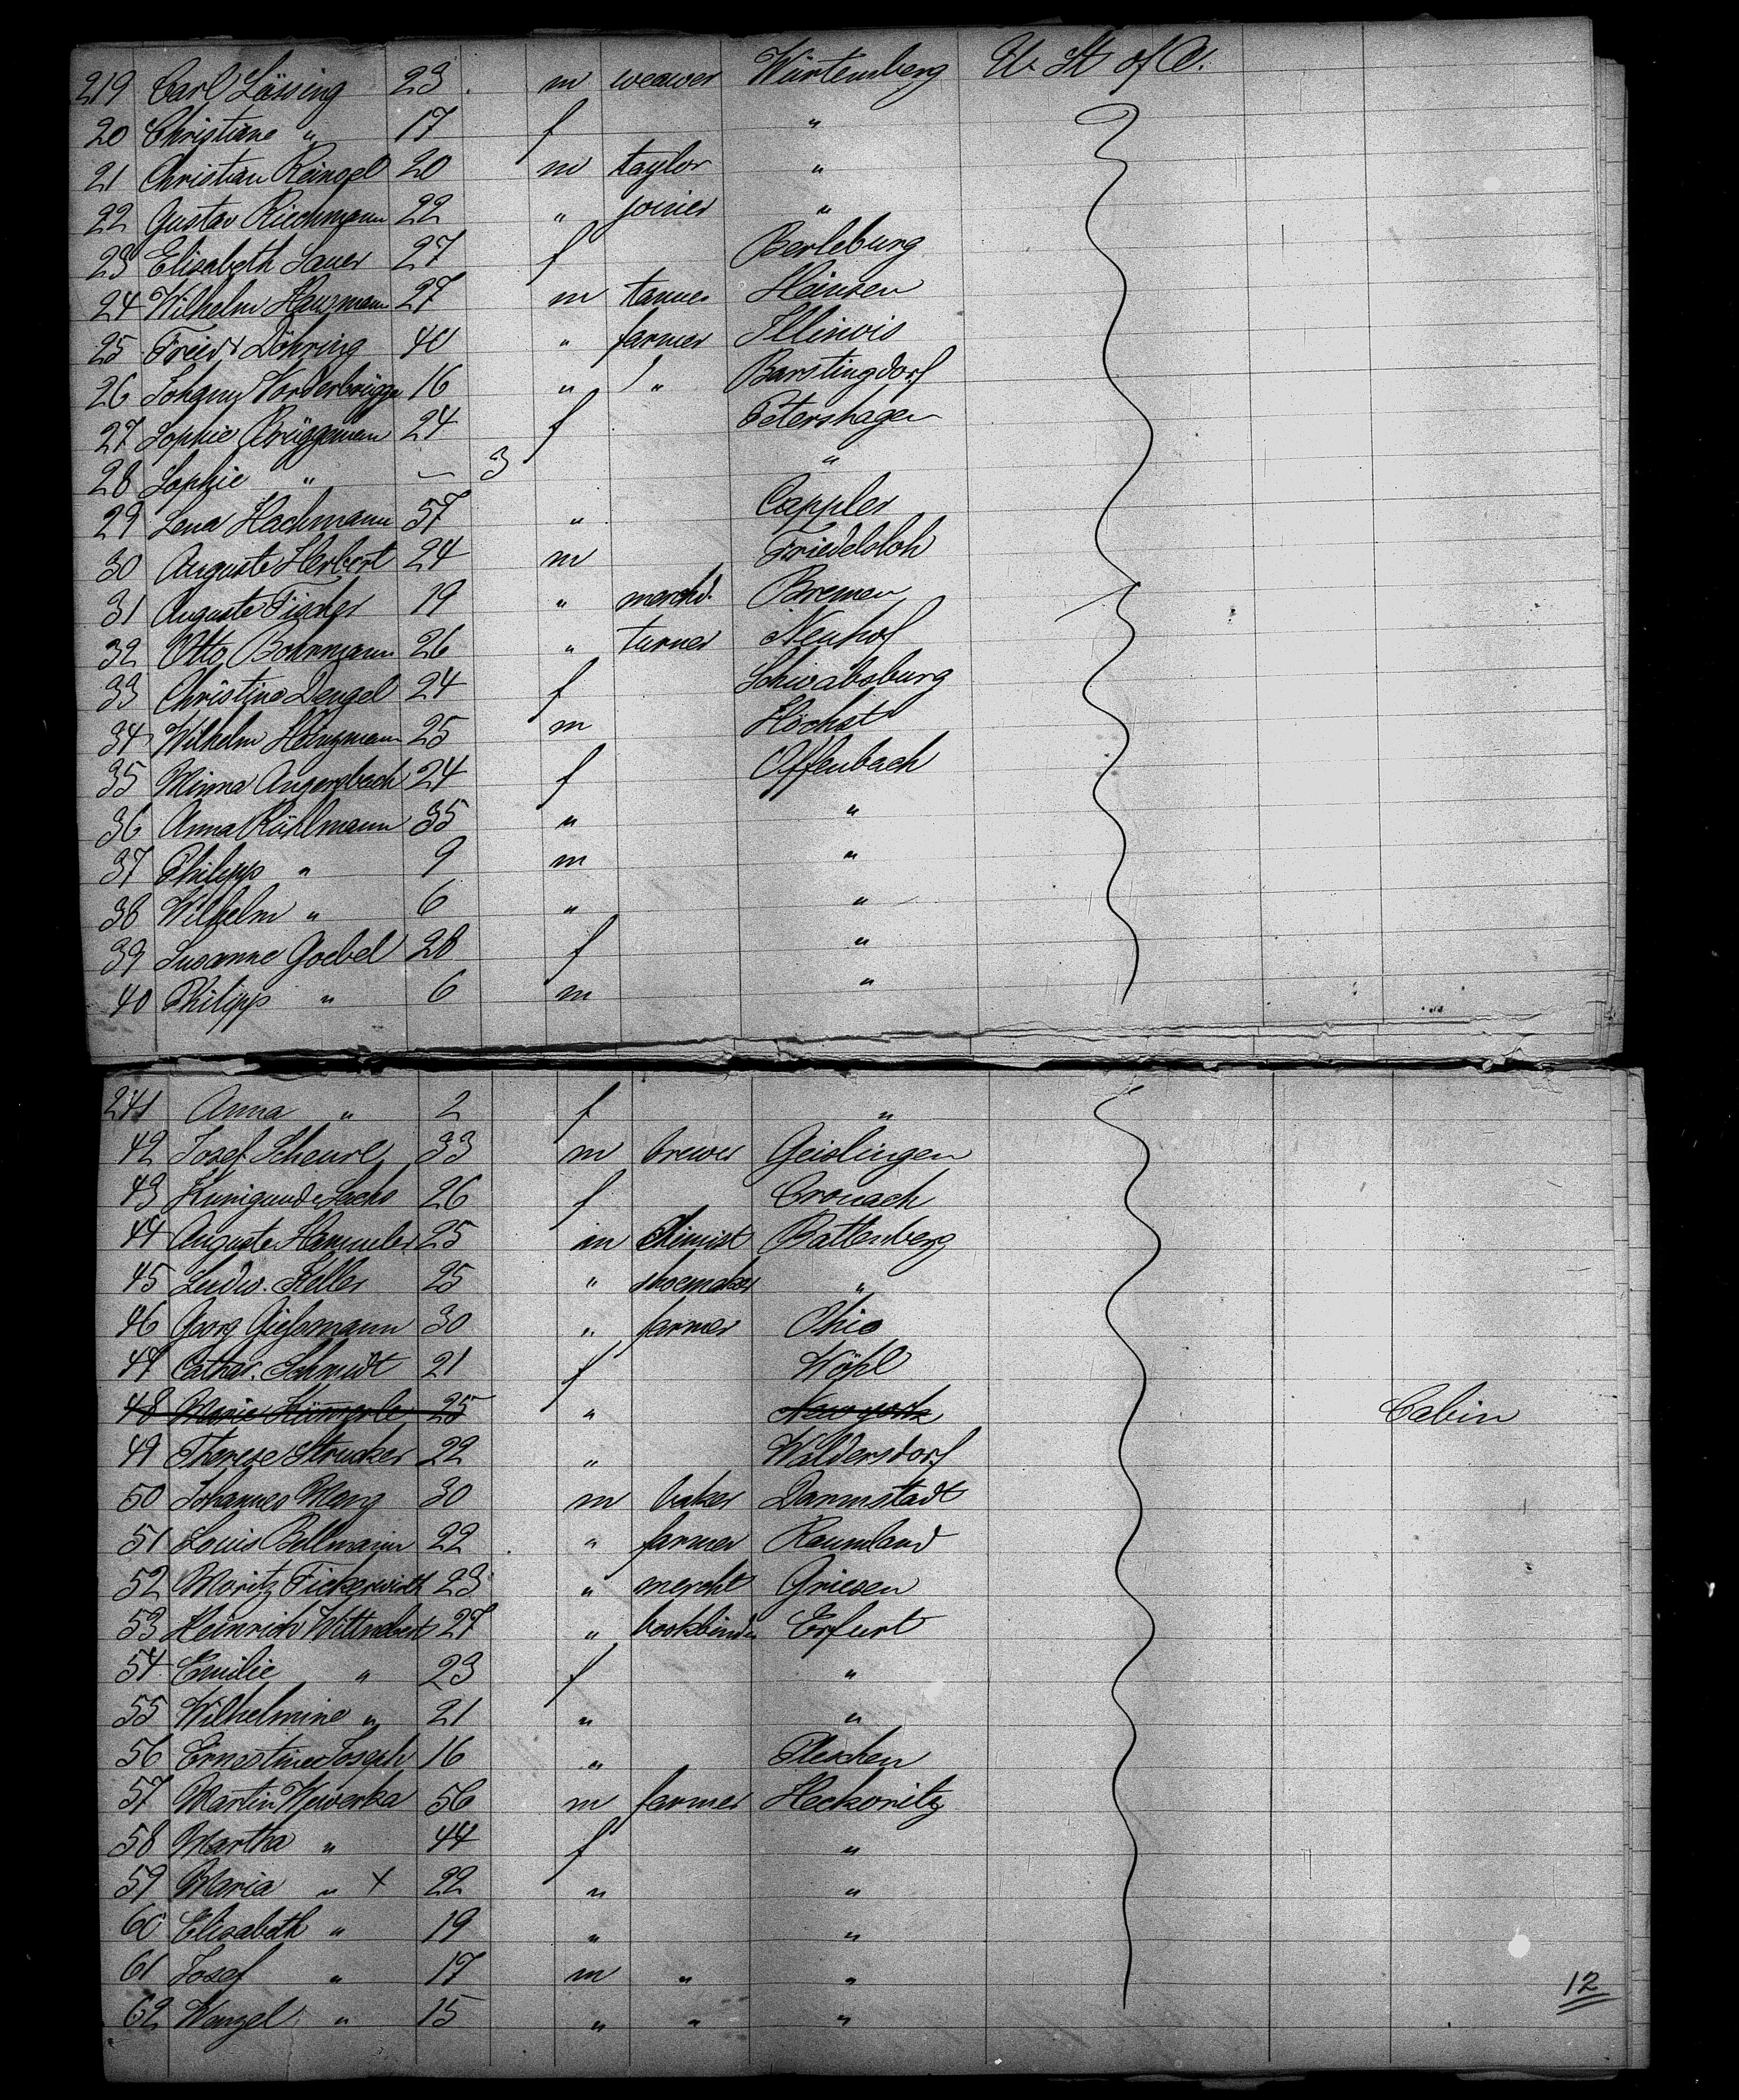 219 Carl Lössing 23 m weawer Würtemberg U. St of A.
20 Christiane " 17 f "
21 Christian Reingel 20 m taylor "
22 Gustav Riechmann 22 " joiner "
23 Elisabeth Sauer 27 f Berleburg
24 Wilhelm Hausmann 27 m tanner Heinsen
25 Friedr Döhring 40 " farmer Illinois
26 Johann Vorderbrügge 16 " " Barstingdorf
27 Sophie Brüggeman 24 f Petershagen
28 Sophie " — 3 "
29 Lena Hachmann 57 " Cappler
30 Auguste Herbert 24 m Friedelsloh
31 Auguste Fischer 19 " merchd. Bremen
32 Otto Bohrmann 26 " turner Neuhof
33 Christine Dengel 24 f Schwabsburg
34 Wilhelm Heinzmann 25 m Höchst
35 Minna Angersbach 24 f Offenbach
36 Anna Kühlmann 35 " "
37 Philipp " 9 m "
38 Wilhelm " 6 " "
39 Susanne Goebel 28 f "
40 Philipp " 6 m "
241 Anna " 2 f "
42 Josef Scheurle 33 m brewer Geislingen
43 Kunigunde Sachs 26 f Cronach
44 Auguste Hammeler 25 m Chimist Battenberg
45 Ludw. Keller 25 " shoemaker "
46 Georg Gießmann 30 " farmer Ohio
47 Cathar. Schmidt 21 f Wöhl
48 Marie Kümmerle 25 " New york Cabin
49 Therese Strucker 22 " Waldersdorf
50 Johannes Meng 30 m baker Darmstadt
51 Louis Bellmann 22 " farmer Raumland
52 Moritz Fickerwirth 23 " mercht Griesen
53 Heinrich Wittnebert 27 " bookbinder Erfurt
54 Emilie " 23 f "
55 Wilhelmine " 21 " "
56 Ernestine Joseph 16 " Pleschen
57 Martin Wewerka 56 m farmer Heckovitz
58 Martha " 44 f "
59 Maria " x 22 " "
60 Elisabeth " 19 " "
61 Josef " 17 m " "
62 Wenzel " 15 " " "
12